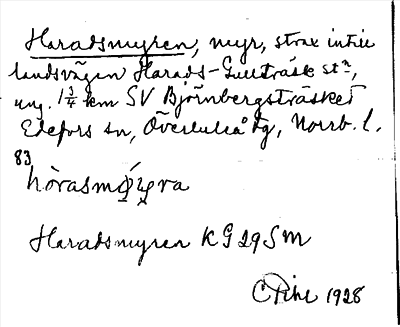 Haradsmyren, myr, strax intill
landsvägen Harads-Gullträsk stn,
ung. 1 3/4 km SV Björnbergsträsket
Edefors sn, Överluleå tg, Norrb. l.
83
Haradsmyren KG 29 SM
C Pihl 1928